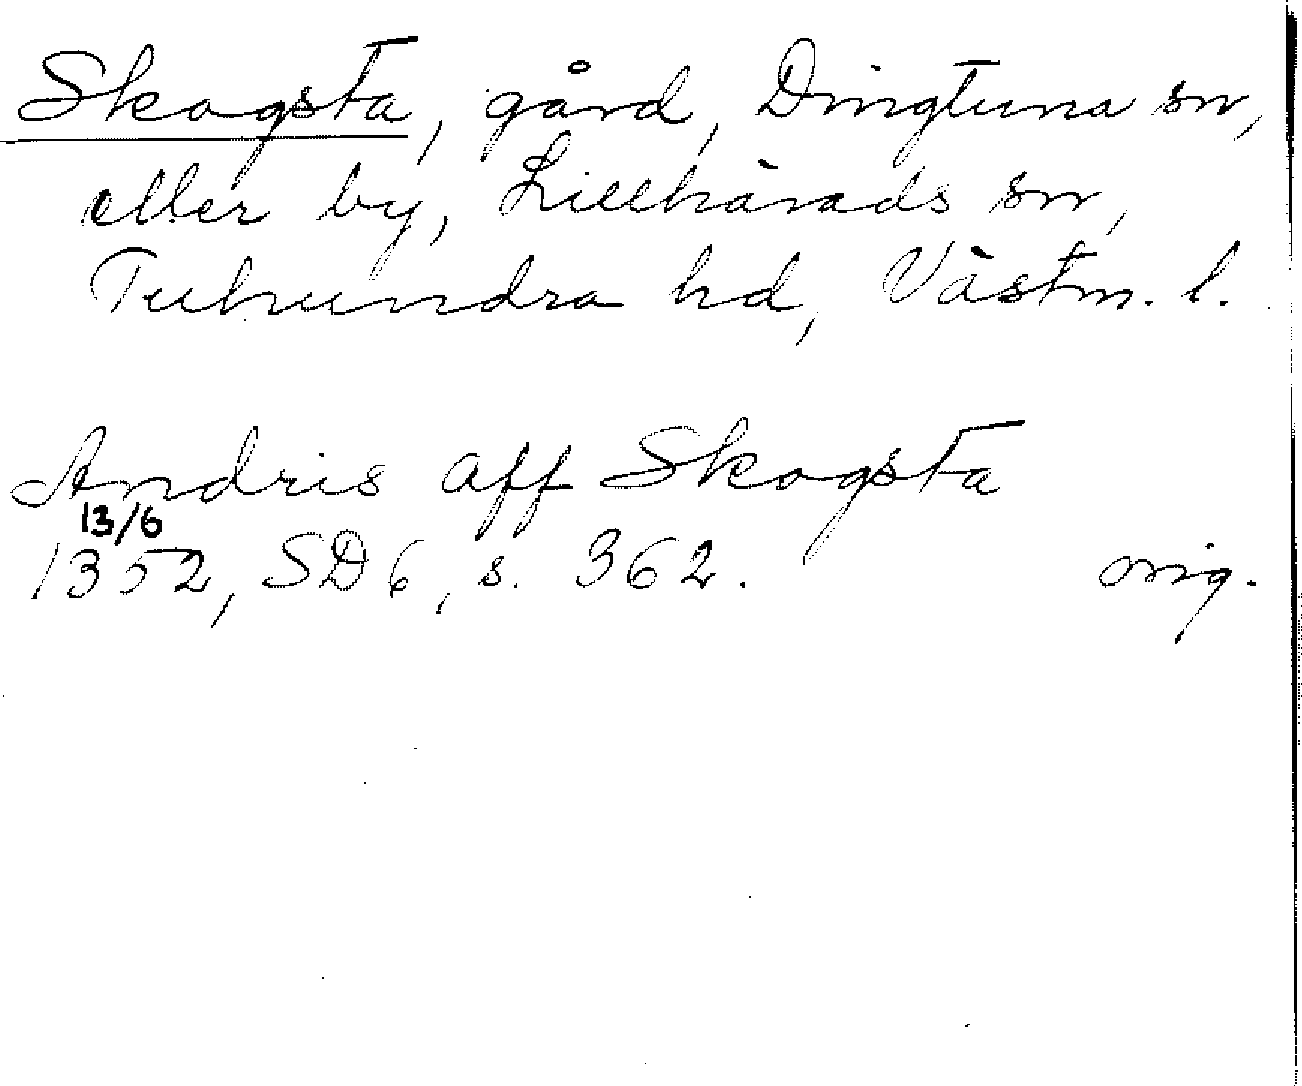 Skogsta, gård, Dingtuna sn,
eller by, Lillhärads sn,
Tuhundra hd, Västm. l.
Andris aff Skogsta
13/6
1352, SD 6, s. 362. orig.